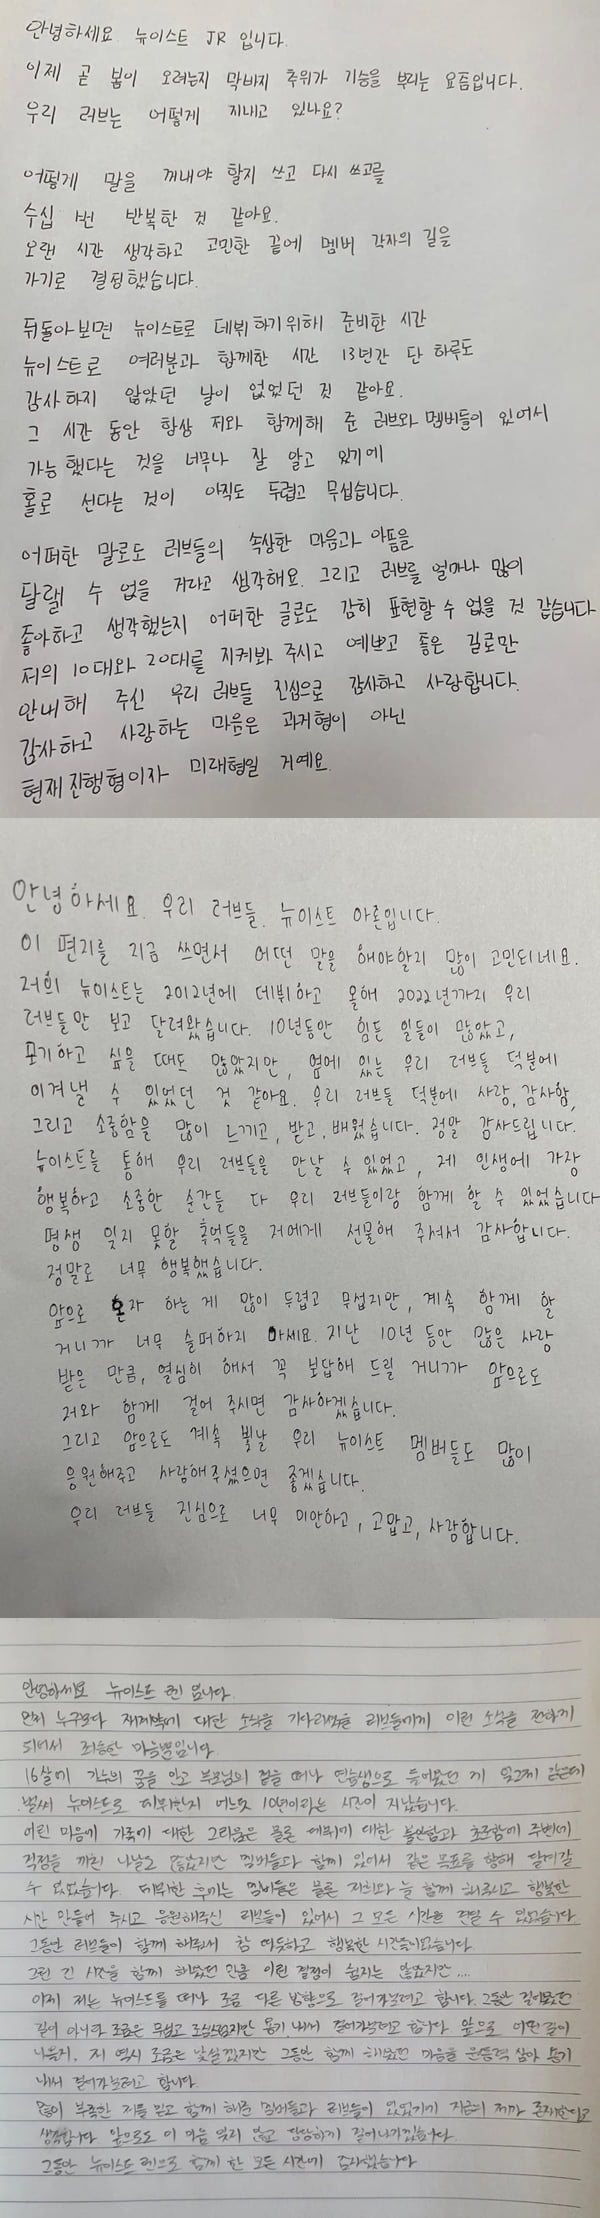 안녕하세요 뉴이스트 JR 입니다.
이제 곧 봄이 오려는지 막바지 추위가 기승을 부리는 요즘입니다.
우리 러브는 어떻게 지내고 있나요?
어떻게 말을 꺼내야 할지 쓰고 다시 쓰고를
수십 번 반복한 것 같아요.
오랜 시간 생각하고 고민한 끝에 멤버 각자의 길을
가기로 결정했습니다.
뒤돌아보면 뉴이스트로 데뷔하기위해 준비한 시간
뉴이스트로 여러분과 함께한 시간 13년간 단 하루도
감사하지 않았던 날이 없었던 것 같아요.
그 시간 동안 항상 저와 함께해 준 러브와 멤버들이 있어서
가능했다는 것을 너무나 잘 알고 있기에
홀로 선다는 것이 아직도 두렵고 무섭습니다.
어떠한 말로도 러브들의 속상한 마음과 아픔을
달랠 수 없을 거라고 생각해요. 그리고 러브를 얼마나 많이
좋아하고 생각했는지 어떠한 글로도 감히 표현할 수 없을 것 같습니다
저의 10대와 20대를 지켜봐 주시고 예쁘고 좋은 길로만
안내해 주신 우리 러브들 진심으로 감사하고 사랑합니다.
감사하고 사랑하는 마음은 과거형이 아닌
현재진행형이자 미래형일 거예요.
안녕하세요. 우리 러브들. 뉴이스트 아론입니다.
이 편지를 지금 쓰면서 어떤 말을 해야할지 많이 고민되네요.
저희 뉴이스트는 2012년에 데뷔하고 올해 2022년까지 우리
러브들만 보고 달려왔습니다. 10년동안 힘든 일들이 많았고,
포기하고 싶을 때도 많았지만, 옆에 있는 우리 러브들 덕분에
이겨낼 수 있었던 것 같아요. 우리 러브들 덕분에 사랑, 감사함,
그리고 소중함을 많이 느끼고, 받고, 배웠습니다. 정말 감사드립니다.
뉴이스트를 통해 우리 러브들을 만날 수 있었고, 제 인생에 가장
행복하고 소중한 순간들 다 우리 러브들이랑 함께 할 수 있었습니다
평생 잊지 못할 추억들을 저에게 선물해 주셔서 감사합니다.
정말로 너무 행복했습니다.
앞으로 혼자 하는 게 많이 두렵고 무섭지만, 계속 함께 할
거니까 너무 슬퍼하지 마세요. 지난 10년 동안 많은 사랑
받은 만큼, 열심히 해서 꼭 보답해 드릴 거니까 앞으로도
저와 함께 걸어 주시면 감사하겠습니다.
그리고 앞으로도 계속 빛날 우리 뉴이스트 멤버들도 많이
응원해주고 사랑해주셨으면 좋겠습니다.
우리 러브들 진심으로 너무 미안하고, 고맙고, 사랑합니다.
안녕하세요 뉴이스트 렌 입니다.
먼저 누구보다 재계약에 대한 소식을 기다리셨을 러브들에게 이런 소식을 전하게
되어서 죄송한 마음뿐입니다.
16살에 가수의 꿈을 안고 부모님의 집을 떠나 연습생으로 들어왔던 게 엊그제 같은데
벌써 뉴이스트로 데뷔한지 어느덧 10년이라는 시간이 지났습니다.
어린 마음에 가족에 대한 그리움은 물론 데뷔에 대한 불안함과 초조함에 주변에
걱정을 끼친 나날도 많았지만 멤버들과 함께 있어서 같은 목표를 향해 달려갈
수 있었습니다. 데뷔한 후에는 멤버들은 물론 저희와 늘 함께 해주시고 행복한
시간 만들어 주시고 응원해주신 러브들이 있어서 그 모든 시간을 견딜 수 있었습니다.
그동안 러브들이 함께 해줘서 참 따뜻하고 행복한 시간들이었습니다.
그런 긴 시간을 함께 해왔던 만큼 이런 결정이 쉽지는 않았지만...
이제 저는 뉴이스트를 떠나 조금 다른 방향으로 걸어가보려고 합니다. 그동안 걸어왔던
길이 아니라 조금은 무섭고 조심스럽지만 용기 내서 걸어가보려고 합니다. 앞으로 어떤 길이
나올지, 저 역시 조금은 낯설겠지만 그동안 함께 해왔던 마음을 원동력 삼아 용기
내서 걸어가보려고 합니다.
많이 부족한 저를 믿고 함께 해준 멤버들과 러브들이 있었기에 지금의 제가 존재한다고
생각합니다. 앞으로도 이 마음 잊지 않고 당당하게 걸어나가겠습니다.
그동안 뉴이스트 렌으로 함께 한 모든 시간에 감사했습니다